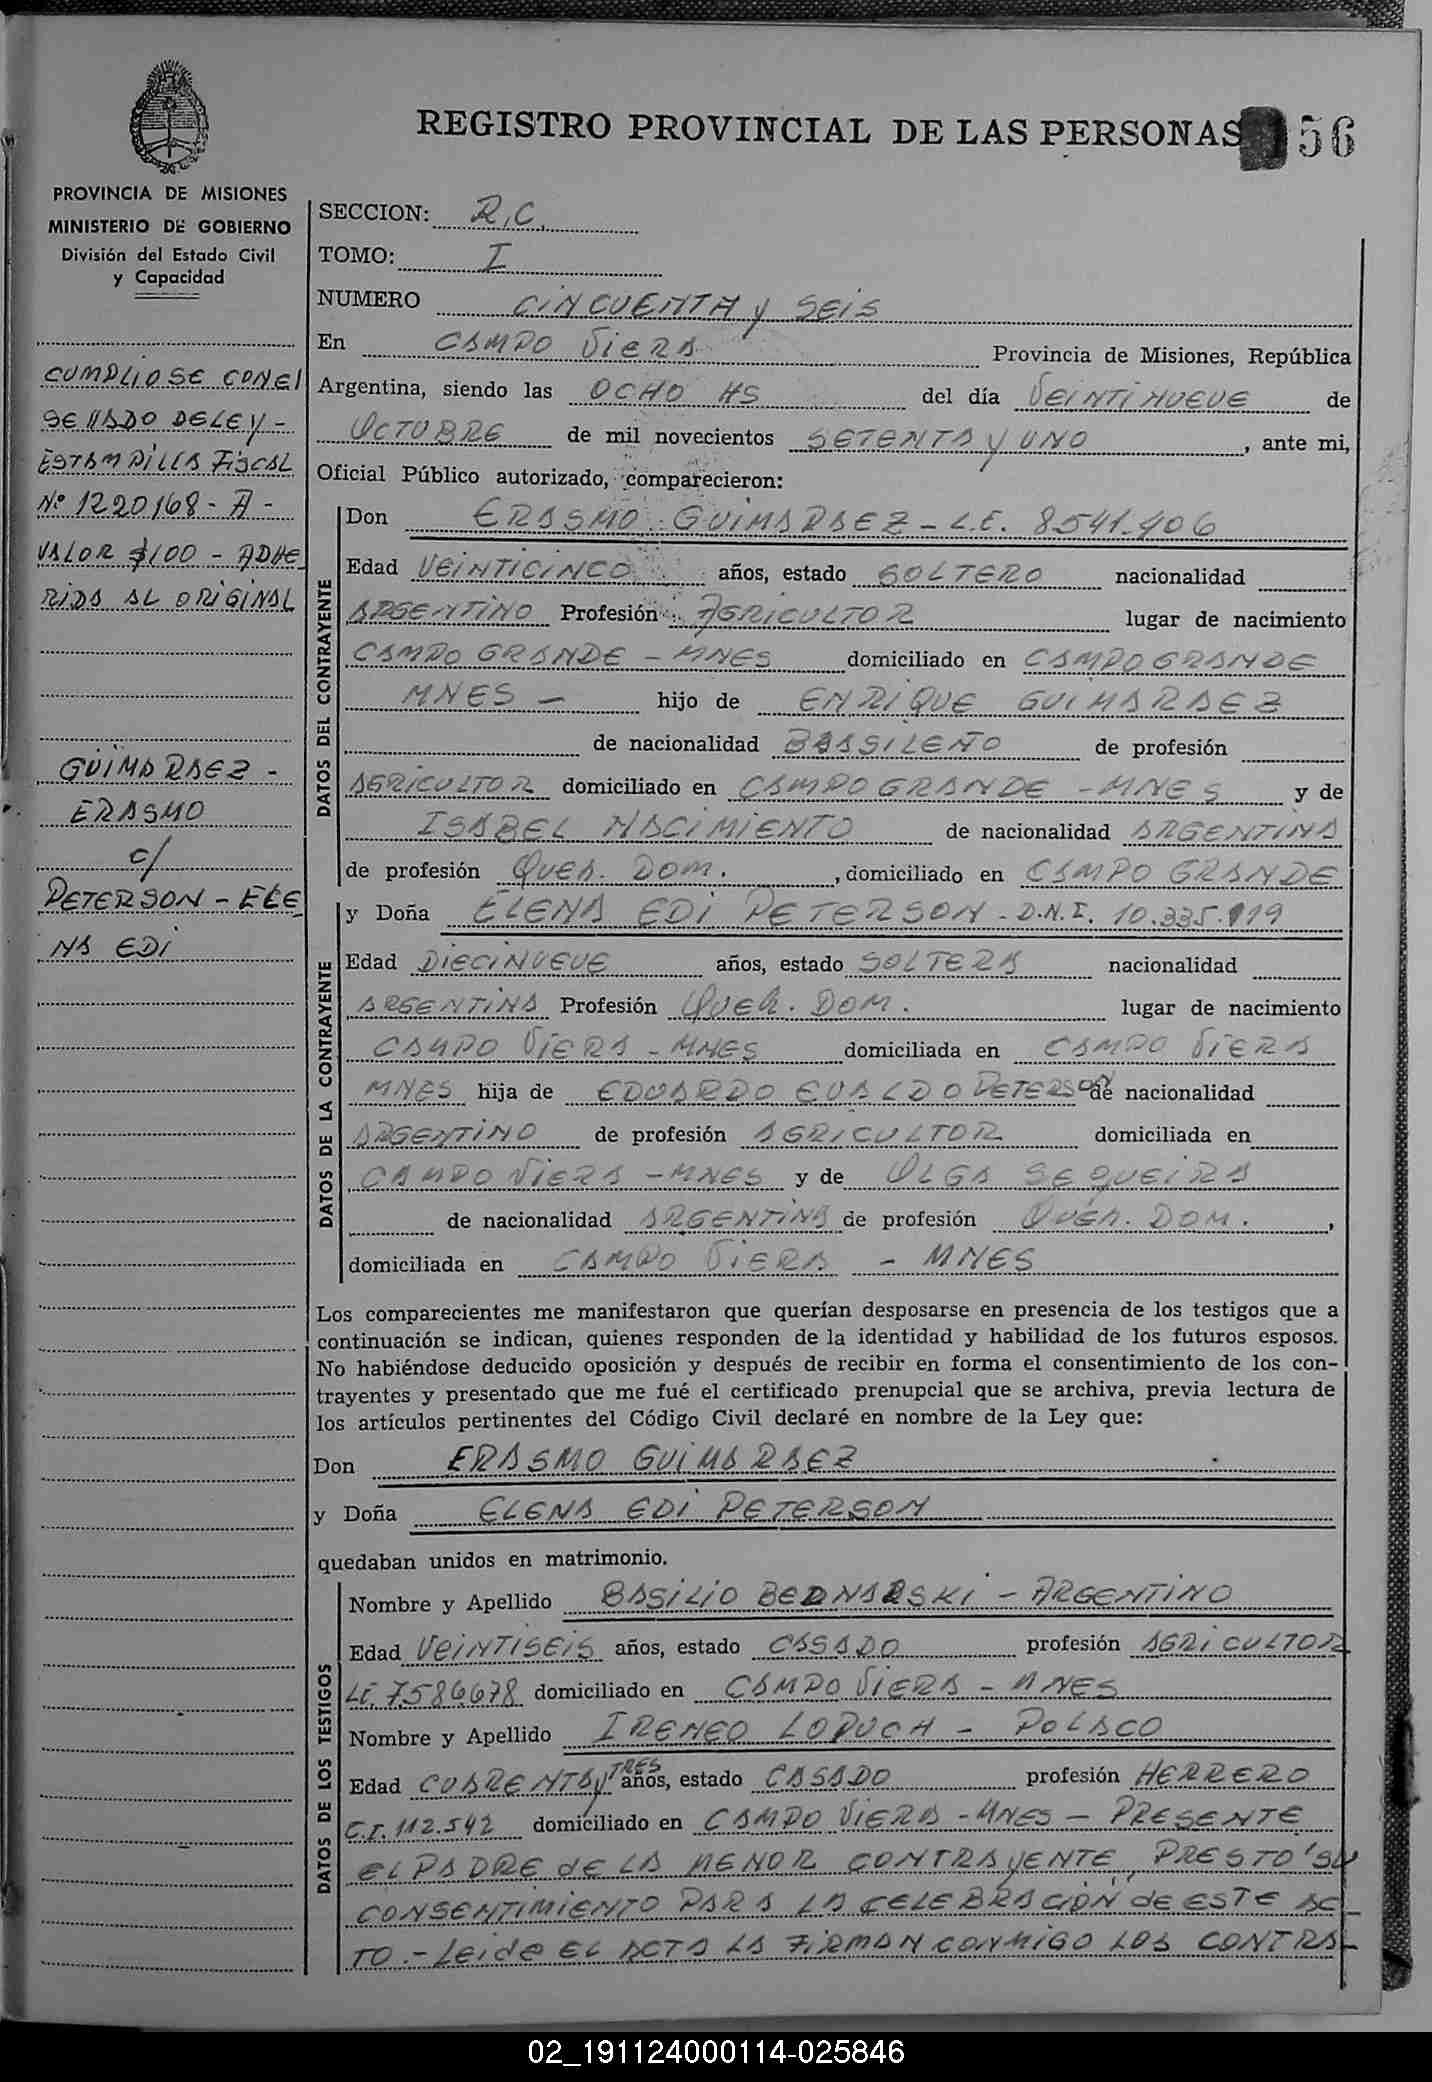 REGISTRO PROVINCIAL DE LAS PERSONAS 56
PROVINCIA DE MISIONES
MINISTERIO DE GOBIERNO
División del Estado Civil
y Capacidad
CUMPLIOSE CON EL
SELLADO DE LEY -
ESTAMPILLA FISCAL
Nº 1220168 - A -
VALOR $100 - ADHE
RIDA AL ORIGINAL
GUIMARAEZ -
ERASMO
c/
PETERSON - ELE
NA EDI
SECCION: R.C.
TOMO: I
NUMERO CINCUENTA y SEIS
En CAMPO VIERA Provincia de Misiones, República
Argentina, siendo las OCHO HS del día VEINTINUEVE de
OCTUBRE de mil novecientos SETENTA y UNO, ante mi,
Oficial Público autorizado, comparecieron:
DATOS DEL CONTRAYENTE
Don ERASMO GUIMARAEZ - L.E. 8.541.406
Edad VEINTICINCO años, estado SOLTERO nacionalidad
ARGENTINO Profesión AGRICULTOR lugar de nacimiento
CAMPO GRANDE - MNES domiciliado en CAMPO GRANDE
MNES - hijo de ENRIQUE GUIMARAEZ
de nacionalidad BRASILEÑO de profesión
AGRICULTOR domiciliado en CAMPO GRANDE - MNES y de
ISABEL NACIMIENTO de nacionalidad ARGENTINA
de profesión QUEH. DOM., domiciliado en CAMPO GRANDE
DATOS DE LA CONTRAYENTE
y Doña ELENA EDI PETERSON - D.N.I. 10.335.119
Edad DIECINUEVE años, estado SOLTERA nacionalidad
ARGENTINA Profesión QUEH. DOM. lugar de nacimiento
CAMPO VIERA - MNES domiciliada en CAMPO VIERA
MNES hija de EDUARDO EVALDO PETERSON de nacionalidad
ARGENTINO de profesión AGRICULTOR domiciliada en
CAMPO VIERA - MNES y de OLGA SEQUEIRA
de nacionalidad ARGENTINA de profesión QUEH. DOM.,
domiciliada en CAMPO VIERA - MNES
Los comparecientes me manifestaron que querían desposarse en presencia de los testigos que a
continuación se indican, quienes responden de la identidad y habilidad de los futuros esposos.
No habiéndose deducido oposición y después de recibir en forma el consentimiento de los con-
trayentes y presentado que me fué el certificado prenupcial que se archiva, previa lectura de
los artículos pertinentes del Código Civil declaré en nombre de la Ley que:
Don ERASMO GUIMARAEZ
y Doña ELENA EDI PETERSON
quedaban unidos en matrimonio.
DATOS DE LOS TESTIGOS
Nombre y Apellido BASILIO BEDNARSKI - ARGENTINO
Edad VEINTISEIS años, estado CASADO profesión AGRICULTOR
L.E. 7.586.678 domiciliado en CAMPO VIERA - MNES
Nombre y Apellido IRENEO LOPUCH - POLACO
Edad CUARENTA y TRES años, estado CASADO profesión HERRERO
C.I. 112.542 domiciliado en CAMPO VIERA - MNES - PRESENTE
EL PADRE de LA MENOR CONTRAYENTE, PRESTO' SU
CONSENTIMIENTO PARA LA CELEBRACIÓN de ESTE AC_
TO. - Leida EL ACTA LA FIRMAN CONMIGO LOS CONTRA-
02_191124000114-025846